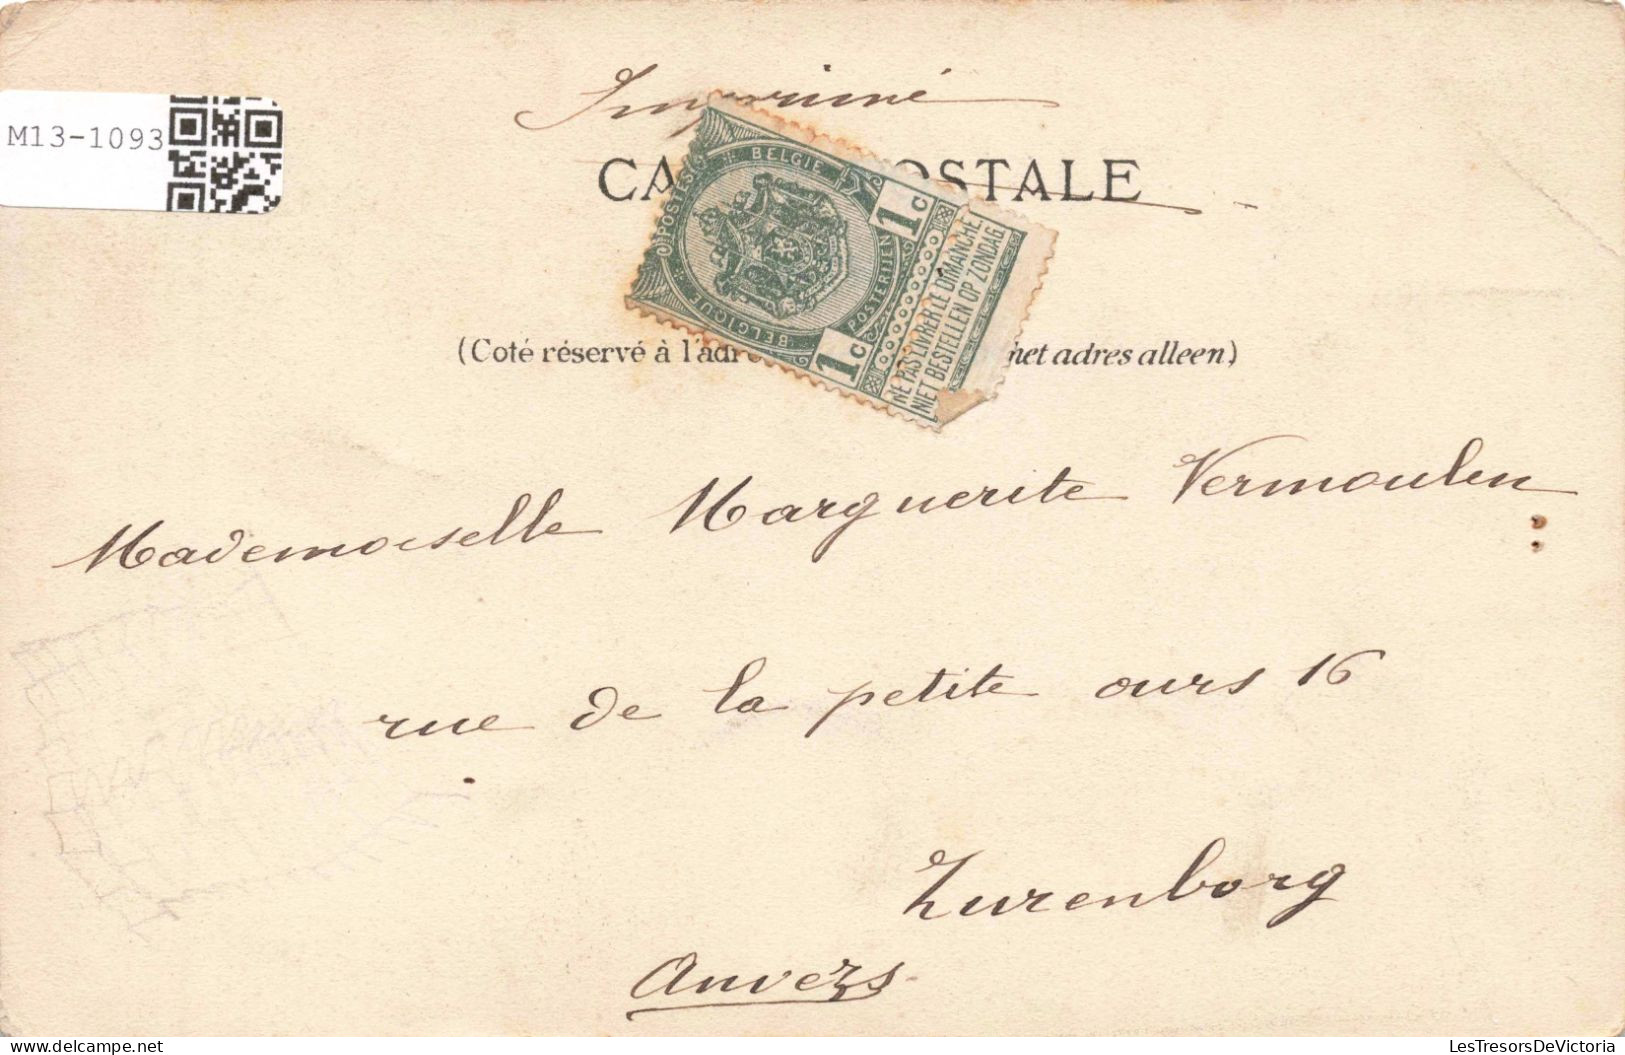 Imprimé
M13-1093
CA OSTALE
POSTES BELGIE
BELGIQUE POSTERIJEN
1c 1c
NE PAS LIVRER LE DIMANCHE
NIET BESTELLEN OP ZONDAG
(Coté réservé à l'adre het adres alleen)
Mademoiselle Marguerite Vermoulen
rue de la petite ours 16
Zurenborg
Anvers
LesTresorsDeVictoria